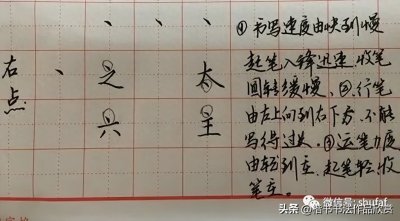 右点
、
、
之
、
太
①书写速度由快到慢
起笔入锋迅速、收笔
回转缓慢、②、行笔
由左上向到右下方、不能
写得过头。③运笔力度
由轻到重、起笔轻收
笔重。
微信号: shufaf
头条 @楷书书法作品欣赏